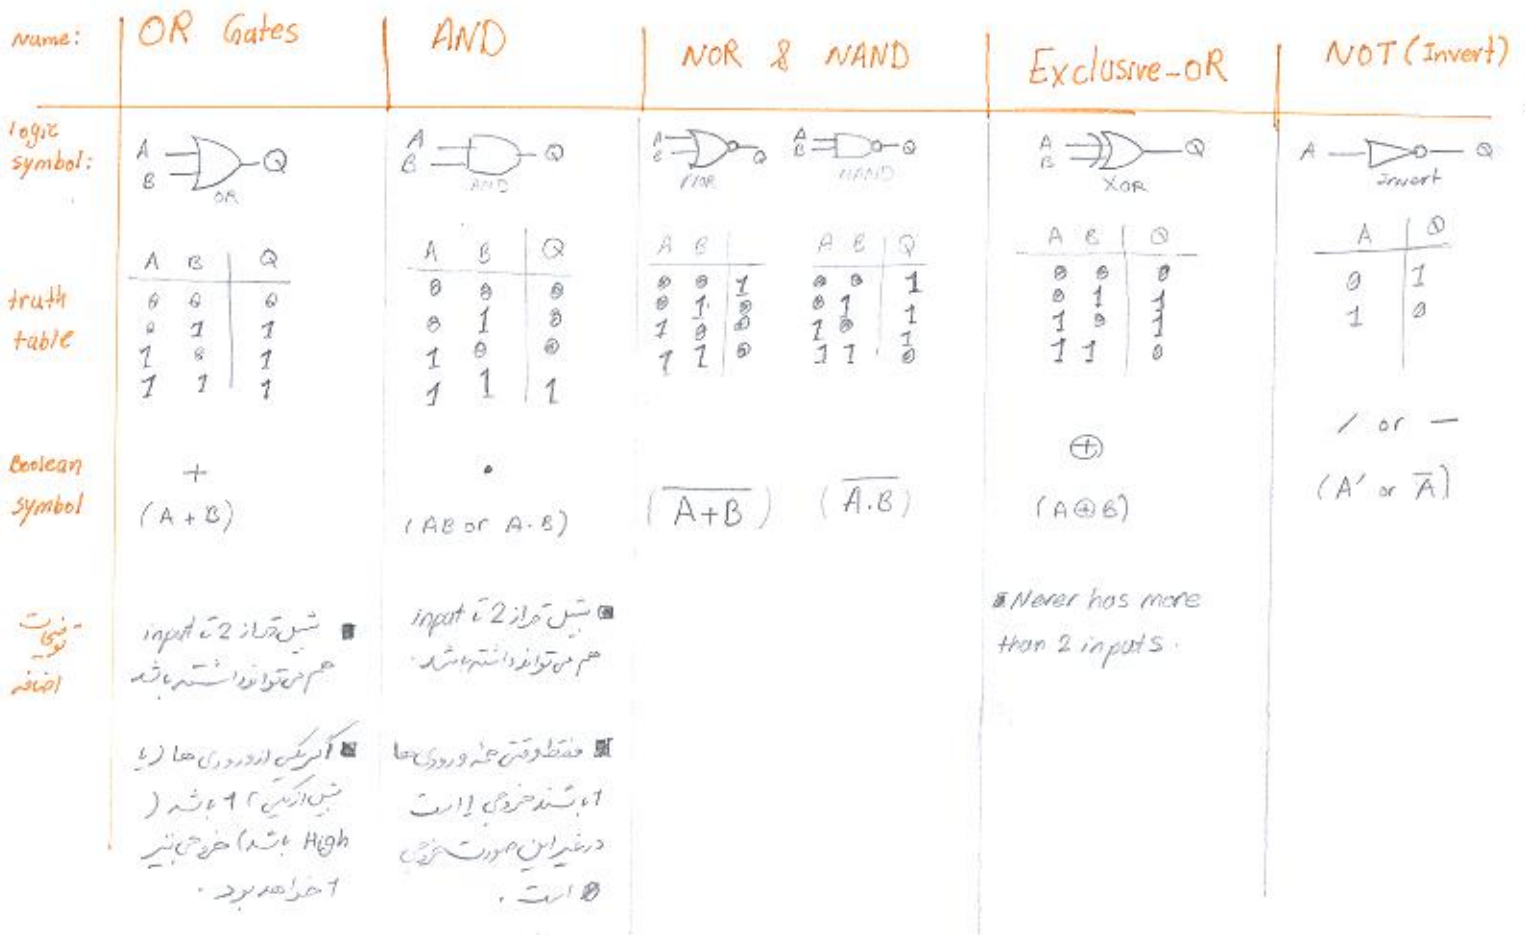 Name:
OR Gates
AND
NOR & NAND
Exclusive-OR
NOT (Invert)
logic
symbol:
A
B
Q
OR
A
B
Q
AND
A
B
Q
NOR
A
B
Q
NAND
A
B
Q
XOR
A
Q
Invert
truth
table
A B Q
0 0 0
0 1 1
1 0 1
1 1 1
A B Q
0 0 0
0 1 0
1 0 0
1 1 1
A B
0 0 1
0 1 0
1 0 0
1 1 0
A B Q
0 0 1
0 1 1
1 0 1
1 1 0
A B Q
0 0 0
0 1 1
1 0 1
1 1 0
A Q
0 1
1 0
Boolean
symbol
+
(A + B)
•
(AB or A.B)
(A̅+̅B̅)
(A̅.̅B̅)
⊕
(A⊕B)
/ or —
(A′ or A̅)
توضیحات
اضافه
بیش تر از 2 تا input
هم می تواند داشته باشد
اگر یکی از ورودی ها (یا
بیش از یکی) 1 باشد (
High باشد) خروجی نیز
1 خواهد بود.
بیش تر از 2 تا input
هم می تواند داشته باشد.
فقط وقتی همه ورودی ها
1 باشند خروجی 1 است
در غیر این صورت خروجی
0 است.
Never has more
than 2 inputs.